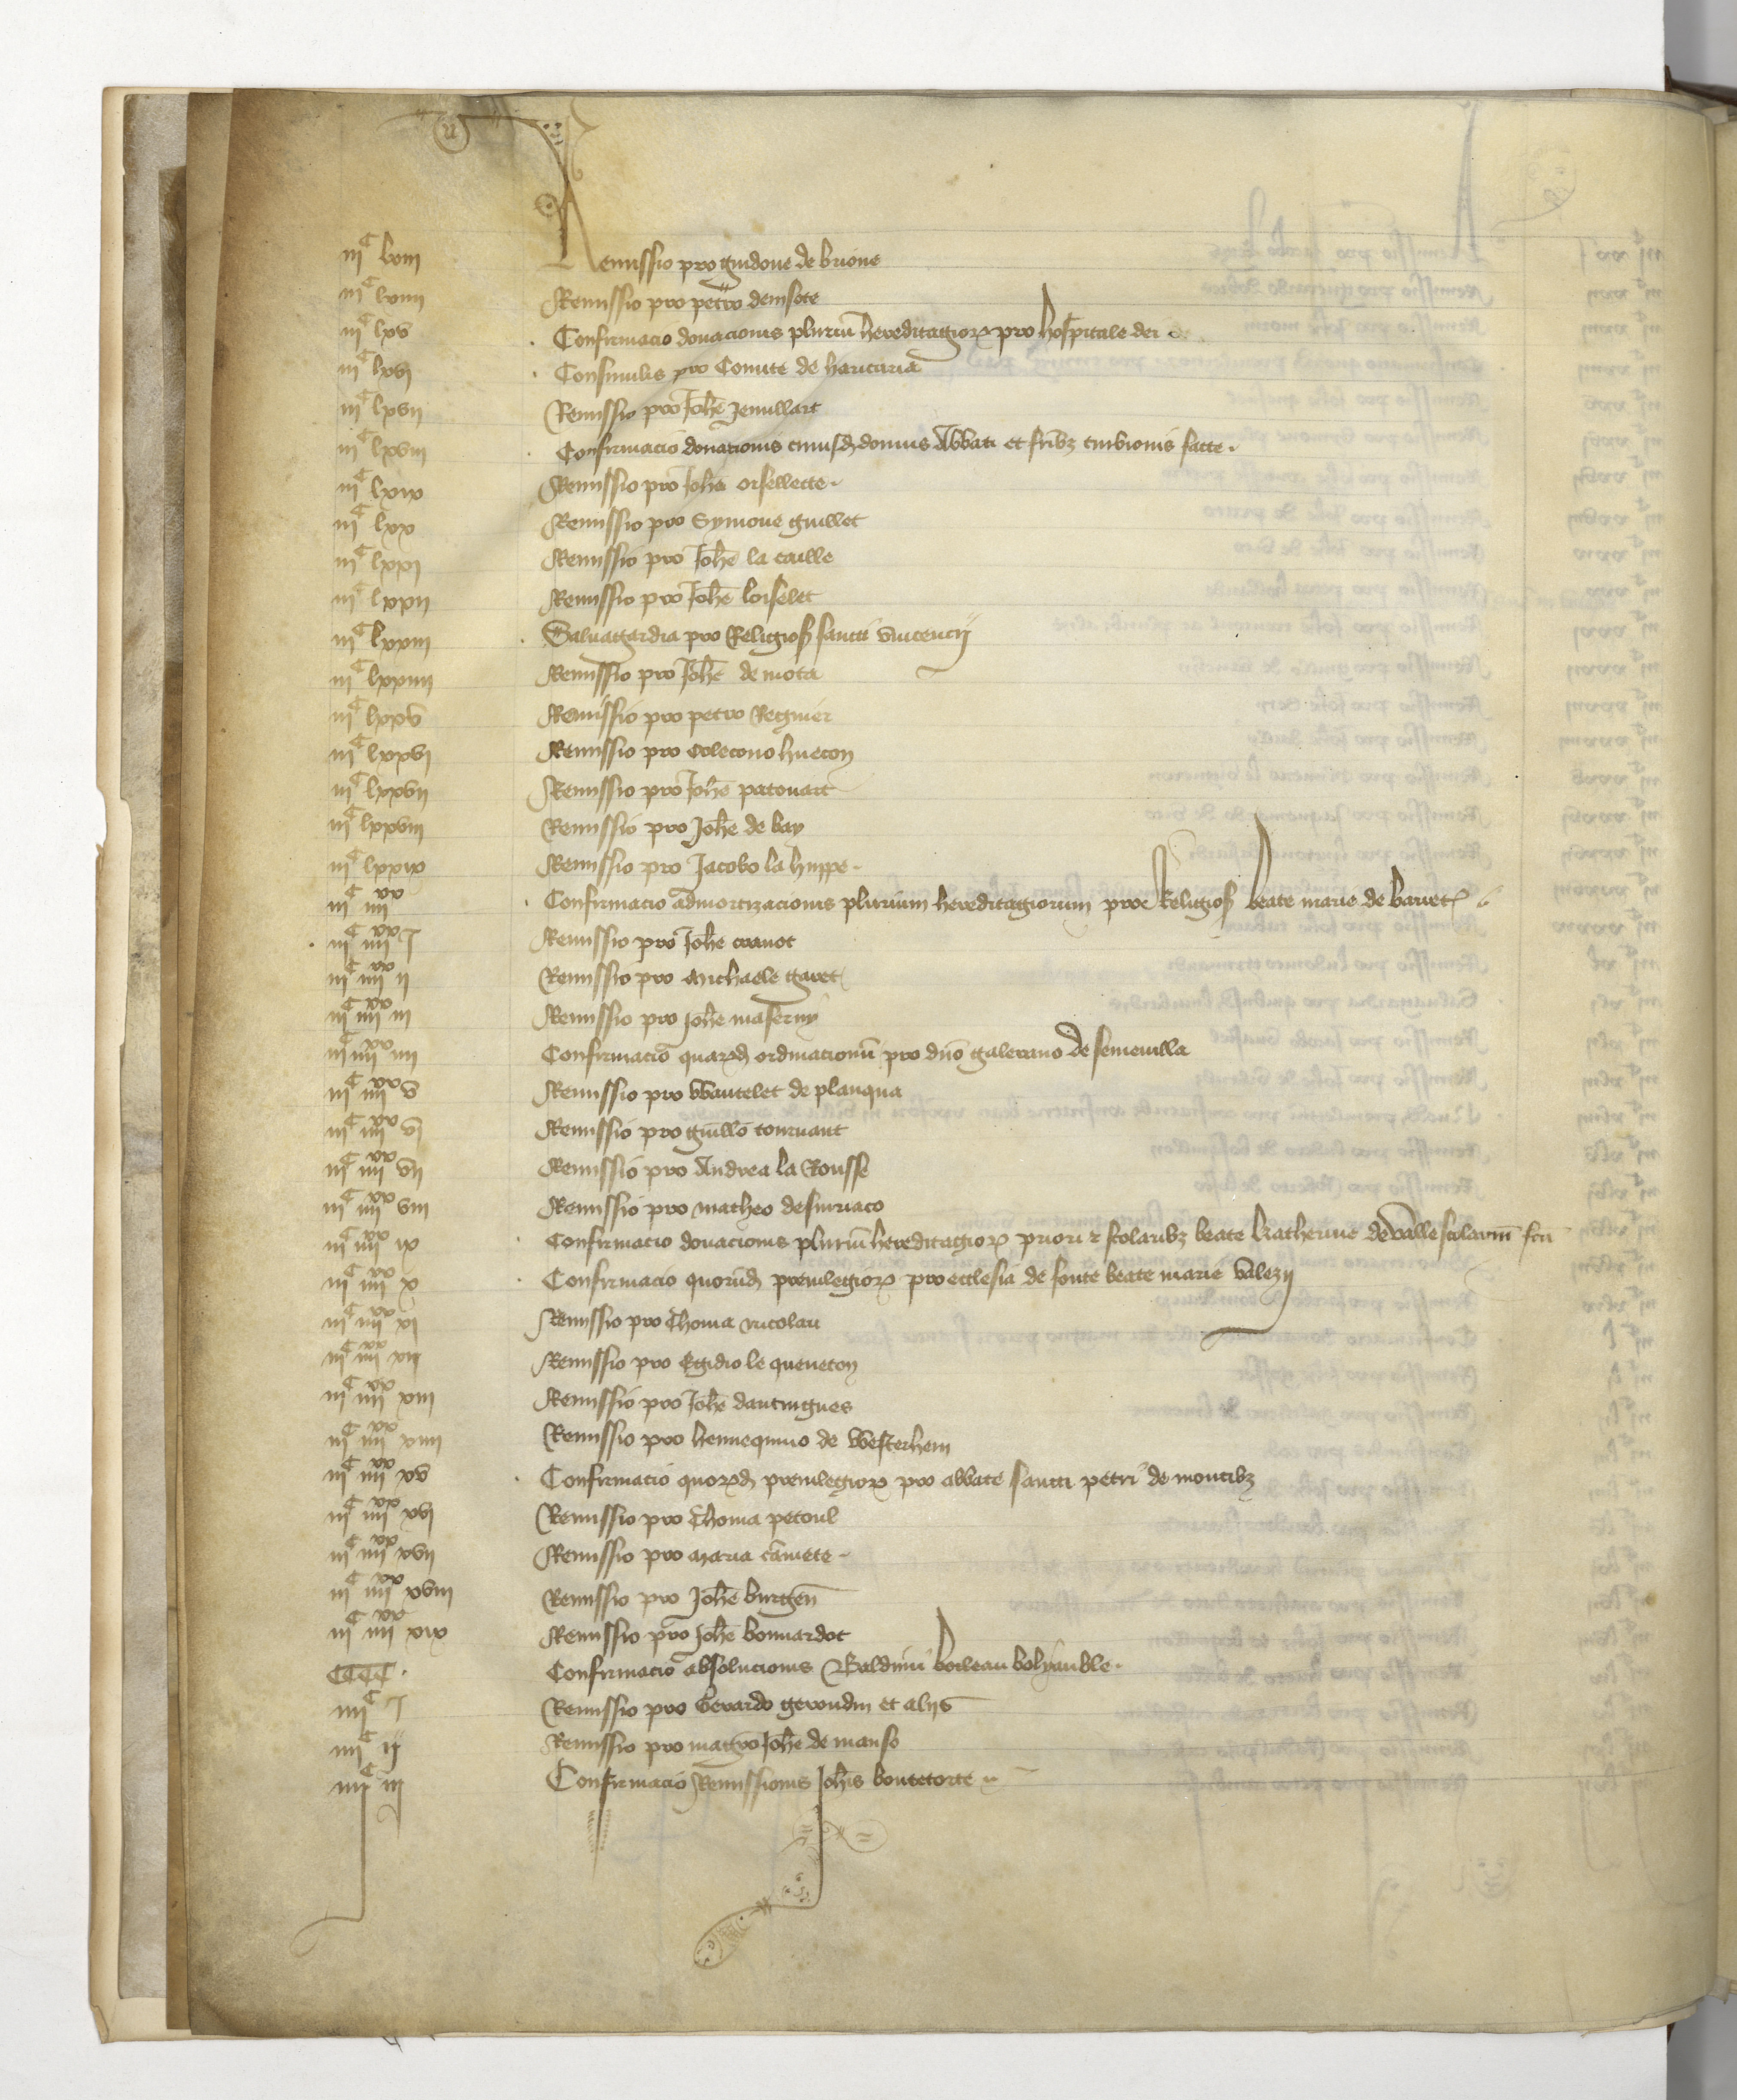 iijᶜ lxiii Remissio pro guidone de brione
iijᶜ lxiiii Remissio pro petro demsote
iijᶜ lxv Confirmacio donacionis pluriū hereditagioꝝ pro hospitale dei
iijᶜ lxvj Consimilis pro Comite de haricuria
iijᶜ lxvii Remissio pro Johē Jenillart
iijᶜ lxviii Confirmacio donationis cuiusdꝫ domus Abbati et fribꝫ facte
iijᶜ lxix Remissio pro Johē orfellecte
iijᶜ lxx Remissio pro Symone guillet
iijᶜ lxxj Remissio pro Johē la caille
iijᶜ lxxii Remissio pro Johē loiselet
iijᶜ lxxiii Salvagardia pro Religioß sancti vincencij
iijᶜ lxxiiii Remissio pro Johē de mota
iijᶜ lxxv Remissio pro petro Regnier
iijᶜ lxxvj Remissio pro colecono huecon
iijᶜ lxxvii Remissio pro Johē patouart
iijᶜ lxxviii Remissio pro Johē de bay
iijᶜ lxxix Remissio pro Jacobo la huppe
iijᶜ iiijˣˣ Confirmacio admortizacionis plurium hereditagiorum pro Religioß beate marie de
iijᶜ iiijˣˣ j Remissio pro Johē cranot
iijᶜ iiijˣˣ ii Remissio pro Michaele garet
iijᶜ iiijˣˣ iii Remissio pro Johē maserny
iijᶜ iiijˣˣ iiii Confirmacio quarūdꝫ ordinacionū pro dño galerano de semenilla
iijᶜ iiijˣˣ v Remissio pro Wautelet de planqua
iijᶜ iiijˣˣ vj Remissio pro guillō tournant
iijᶜ iiijˣˣ vii Remissio pro Andrea la Rousse
iijᶜ iiijˣˣ viii Remissio pro matheo desmriaco
iijᶜ iiijˣˣ ix Confirmacio donacionis pluriū hereditagioꝝ priori ⁊ scolaribꝫ beate Katherine de valle scolariū
iijᶜ iiijˣˣ x Confirmacio quorūdꝫ previlegioꝝ pro ecclesia de fonte beate marie valezij
iijᶜ iiijˣˣ xj Remissio pro Thoma nicolau
iijᶜ iiijˣˣ xii Remissio pro Egidio le queneton
iijᶜ iiijˣˣ xiii Remissio pro Johē dautingues
iijᶜ iiijˣˣ xiiii Remissio pro hennequino de Westerhem
iijᶜ iiijˣˣ xv Confirmacio quorūdꝫ previlegioꝝ pro abbate sancti petri de montibꝫ
iijᶜ iiijˣˣ xvj Remissio pro Thoma petoul
iijᶜ iiijˣˣ xvii Remissio pro Maria
iijᶜ iiijˣˣ xviii Remissio pro Johē burgen̄
iijᶜ iiijˣˣ xix Remissio pro Johē bonnardot
CCCC Confirmacio absolucionis Baldini boileau
iiijᶜ j Remissio pro Gerardo gerondin et aliis
iiijᶜ ij Remissio pro magrō Johē de manso
iiijᶜ iij Confirmacio Remissionis Johīs boutetorte